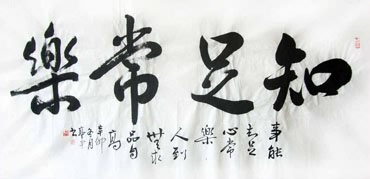 知足常樂
事能
知足
心常
樂
人到
無求
品自
高
辛卯
冬月